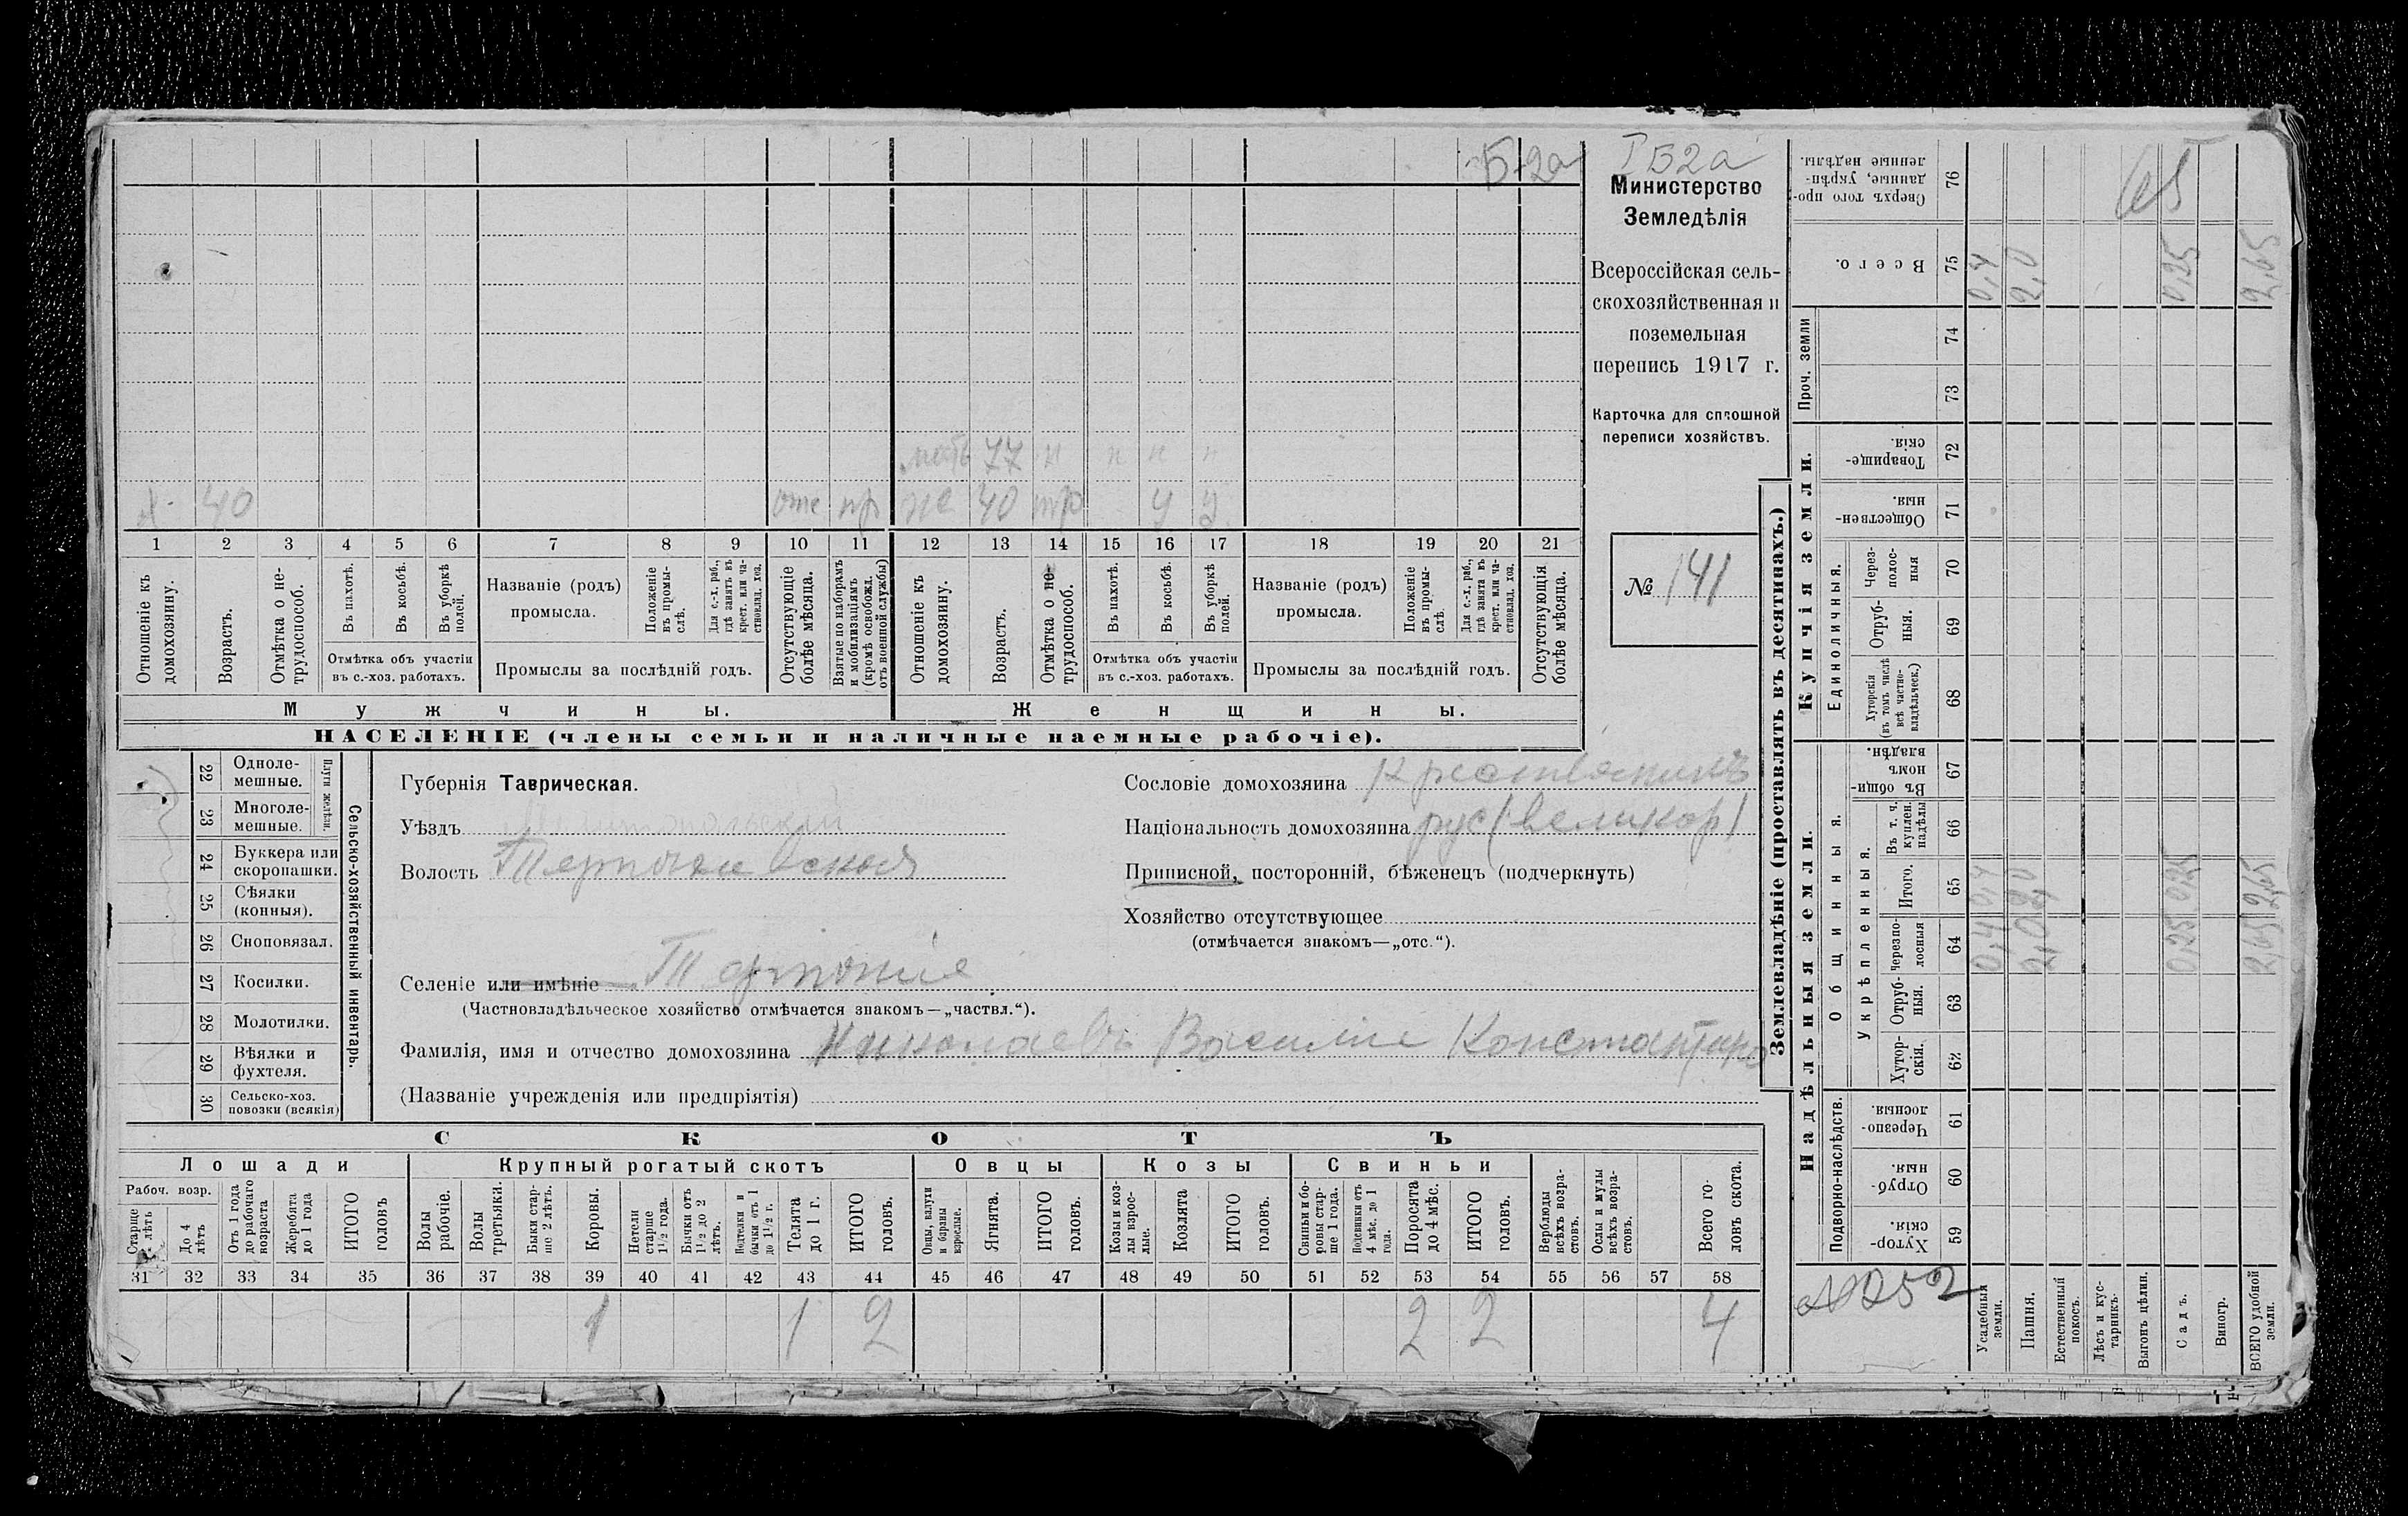 Б-2а
мать 77 н н н н
х. 40 отс пр же 40 тр у у
1 2 3 4 5 6 7 8 9 10 11 12 13 14 15 16 17 18 19 20 21
Отношеніе къ домохозяину.
Возрастъ.
Отмѣтка о не-
трудоспособ.
Въ пахотѣ.
Въ косьбѣ.
Въ уборкѣ полей.
Отмѣтка объ участіи
въ с.-хоз. работахъ.
Названіе (родъ)
промысла.
Положеніе въ промы-
слѣ.
Для с.-х. раб., гдѣ занятъ въ крест. или ча-
стновлад. хоз.
Промыслы за послѣдній годъ.
Отсутствующіе болѣе мѣсяца.
Взятые по наборамъ и мобилизаціямъ (кромѣ освобожд. отъ военной службы)
Отношеніе къ домохозяину.
Возрастъ.
Отмѣтка о не-
трудоспособ.
Въ пахотѣ.
Въ косьбѣ.
Въ уборкѣ полей.
Отмѣтка объ участіи
въ с.-хоз. работахъ.
Названіе (родъ)
промысла.
Положеніе въ промы-
слѣ.
Для с.-х. раб., гдѣ занята въ крест. или ча-
стновлад. хоз.
Промыслы за послѣдній годъ.
Отсутствующія болѣе мѣсяца.
Мужчины.
Женщины.
НАСЕЛЕНІЕ (члены семьи и наличные наемные рабочіе).
Министерство
Земледѣлія
Всероссійская сель-
скохозяйственная и
поземельная
перепись 1917 г.
Карточка для сплошной
переписи хозяйствъ.
№ 141
22 Одноле-
мешные.
23 Многоле-
мешные.
Плуги желѣзн.
24 Буккера или
скоропашки.
25 Сѣялки
(конныя).
26 Сноповязал.
27 Косилки.
28 Молотилки.
29 Вѣялки и
фухтеля.
30 Сельско-хоз.
повозки (всякія)
Сельско-хозяйственный инвентарь.
Губернія Таврическая.
Уѣздъ Мелитопольскій
Волость
Селеніе или имѣніе Терпѣніе
(Частновладѣльческое хозяйство отмѣчается знакомъ—„частвл.“).
Фамилія, имя и отчество домохозяина Николаевъ Василіе Константино
(Названіе учрежденія или предпріятія)
Сословіе домохозяина Крестьянинъ
Національность домохозяина рус (великор)
Приписной, посторонній, бѣженецъ (подчеркнуть)
Хозяйство отсутствующее
(отмѣчается знакомъ—„отс.“).
СКОТЪ
Лошади
Рабоч. возр.
Старше
лѣтъ
До 4 лѣтъ
Отъ 1 года до рабочаго возраста
Жеребята до 1 года
ИТОГО головъ
Крупный рогатый скотъ
Волы рабочіе.
Волы третьяки.
Быки стар-
ше 2 лѣтъ.
Коровы.
Нетели старше 1½ года.
Бычки отъ 1½ до 2 лѣтъ.
Подтелки и бычки отъ 1 до 1½ г.
Телята до 1 г.
ИТОГО головъ.
Овцы
Овцы, валухи и бараны взрослые.
Ягнята.
ИТОГО головъ.
Козы
Козы и коз-
лы взрос-
лые.
Козлята
ИТОГО головъ.
Свиньи
Свиньи и бо-
ровы стар-
ше 1 года.
Подсвинки отъ 4 мѣс. до 1 года.
Поросята до 4 мѣс.
ИТОГО головъ.
Верблюды всѣхъ возра-
стовъ.
Ослы и мулы всѣхъ возра-
стовъ.
Всего го-
ловъ скота.
31 32 33 34 35 36 37 38 39 40 41 42 43 44 45 46 47 48 49 50 51 52 53 54 55 56 57 58
1 1 2 2 2 4
Землевладѣніе (проставлять въ десятинахъ.)
76 Сверхъ того про-
данные, укрѣп-
ленные надѣлы.
65
75 Всего. 0,4 2,0 0,25 2,65
Проч. земли
74
73
Купчія земли.
72 Товарище-
скія.
71 Обществен-
ныя.
Единоличныя.
70 Через-
полос-
ныя
69 Отруб-
ныя.
68 Хуторскія
(въ томъ числѣ
всѣ частно-
владѣльческ.)
Надѣльныя земли.
Общинныя.
67 Въ общи-
номъ
владѣн.
Укрѣпленныя.
66 Въ т. ч.
куплен.
надѣлы
65 Итого. 0,4 2,0 0,25 2,65
64 Черезпо-
лосныя 0,4 2,0 0,25 2,65
63 Отруб-
ныя.
62 Хутор-
скія.
Подворно-наслѣдств.
61 Черезпо-
лосныя.
60 Отруб-
ныя.
59 Хутор-
скія.
№252
Усадебныя земли.
Пашня.
Естественный покосъ.
Лѣсъ и кус-
тарникъ.
Выгонъ цѣлин.
Садъ.
Виногр.
ВСЕГО удобной земли.